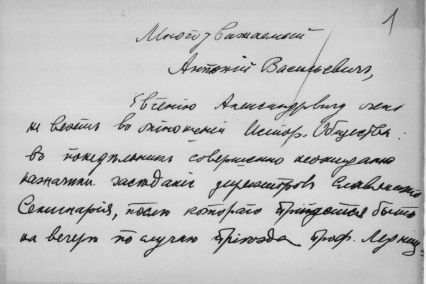 1
Многоуважаемый
Антоний Васильевич,
Евгению Александровичу очень
не везетъ во отношенiи Истор. Общества:
въ понедѣльникъ совершенно неожиданно
назначили засѣданiе директоровъ Славянскаго
Семинарiя, послѣ котораго придется быть
на вечерѣ по случаю прiѣзда проф.